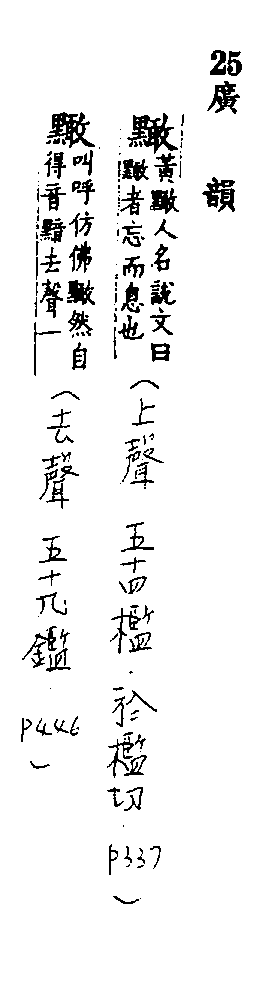 25廣韻
𪒠黃𪒠人名說文曰
𪒠者忘而息也
（上聲 五十四檻．於檻切．p337）
𪒠叫呼仿佛𪒠然自
得音黯去聲一
（去聲 五十九鑑．p446）